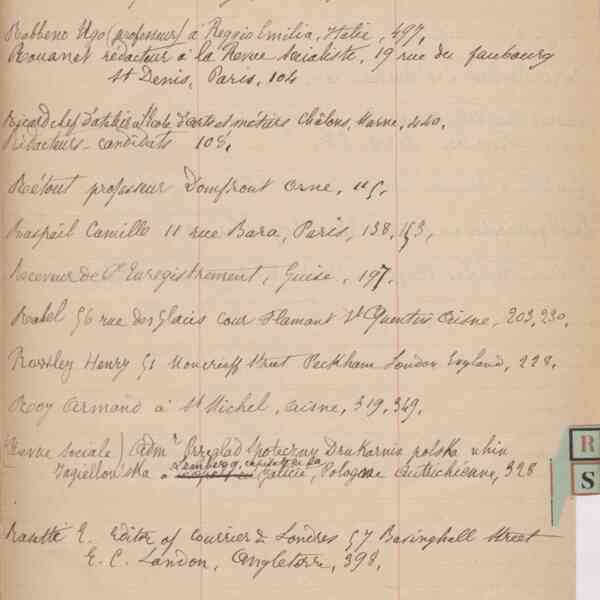 Rabbeno Ugo (professeur) à Reggio Emilia, Italie, 497,
Rouanet rédacteur à la Revue Socialiste, 19 rue du faubourg
St Denis, Paris, 104
Ricard chef d'atelier à l'école d'arts et métiers Châlons, Marne, 440.
Rédacteurs-candidats 105,
Roétout professeur Domfront Orne, 115,
Raspail Camille 11 rue Bara, Paris, 138, 153,
Receveur de l'Enregistrement, Guise, 197.
Rabel 56 rue des Glacis cour Flamant St Quentin Aisne, 203, 230,
Henry 51 Moncrieff Street Peckham London England, 228.
Rooy Armand à St Michel, Aisne, 319, 349,
(Revue sociale) Admr Przeglad Spoleczny Drukarnia polska ulica
Lemberg, capitale de la
Jagiellońska a Galicie, Pologne Autrichienne, 328
E. Editor of Courrier de Londres 57 Basinghall Street
E. C. London, Angleterre, 398,
R
S